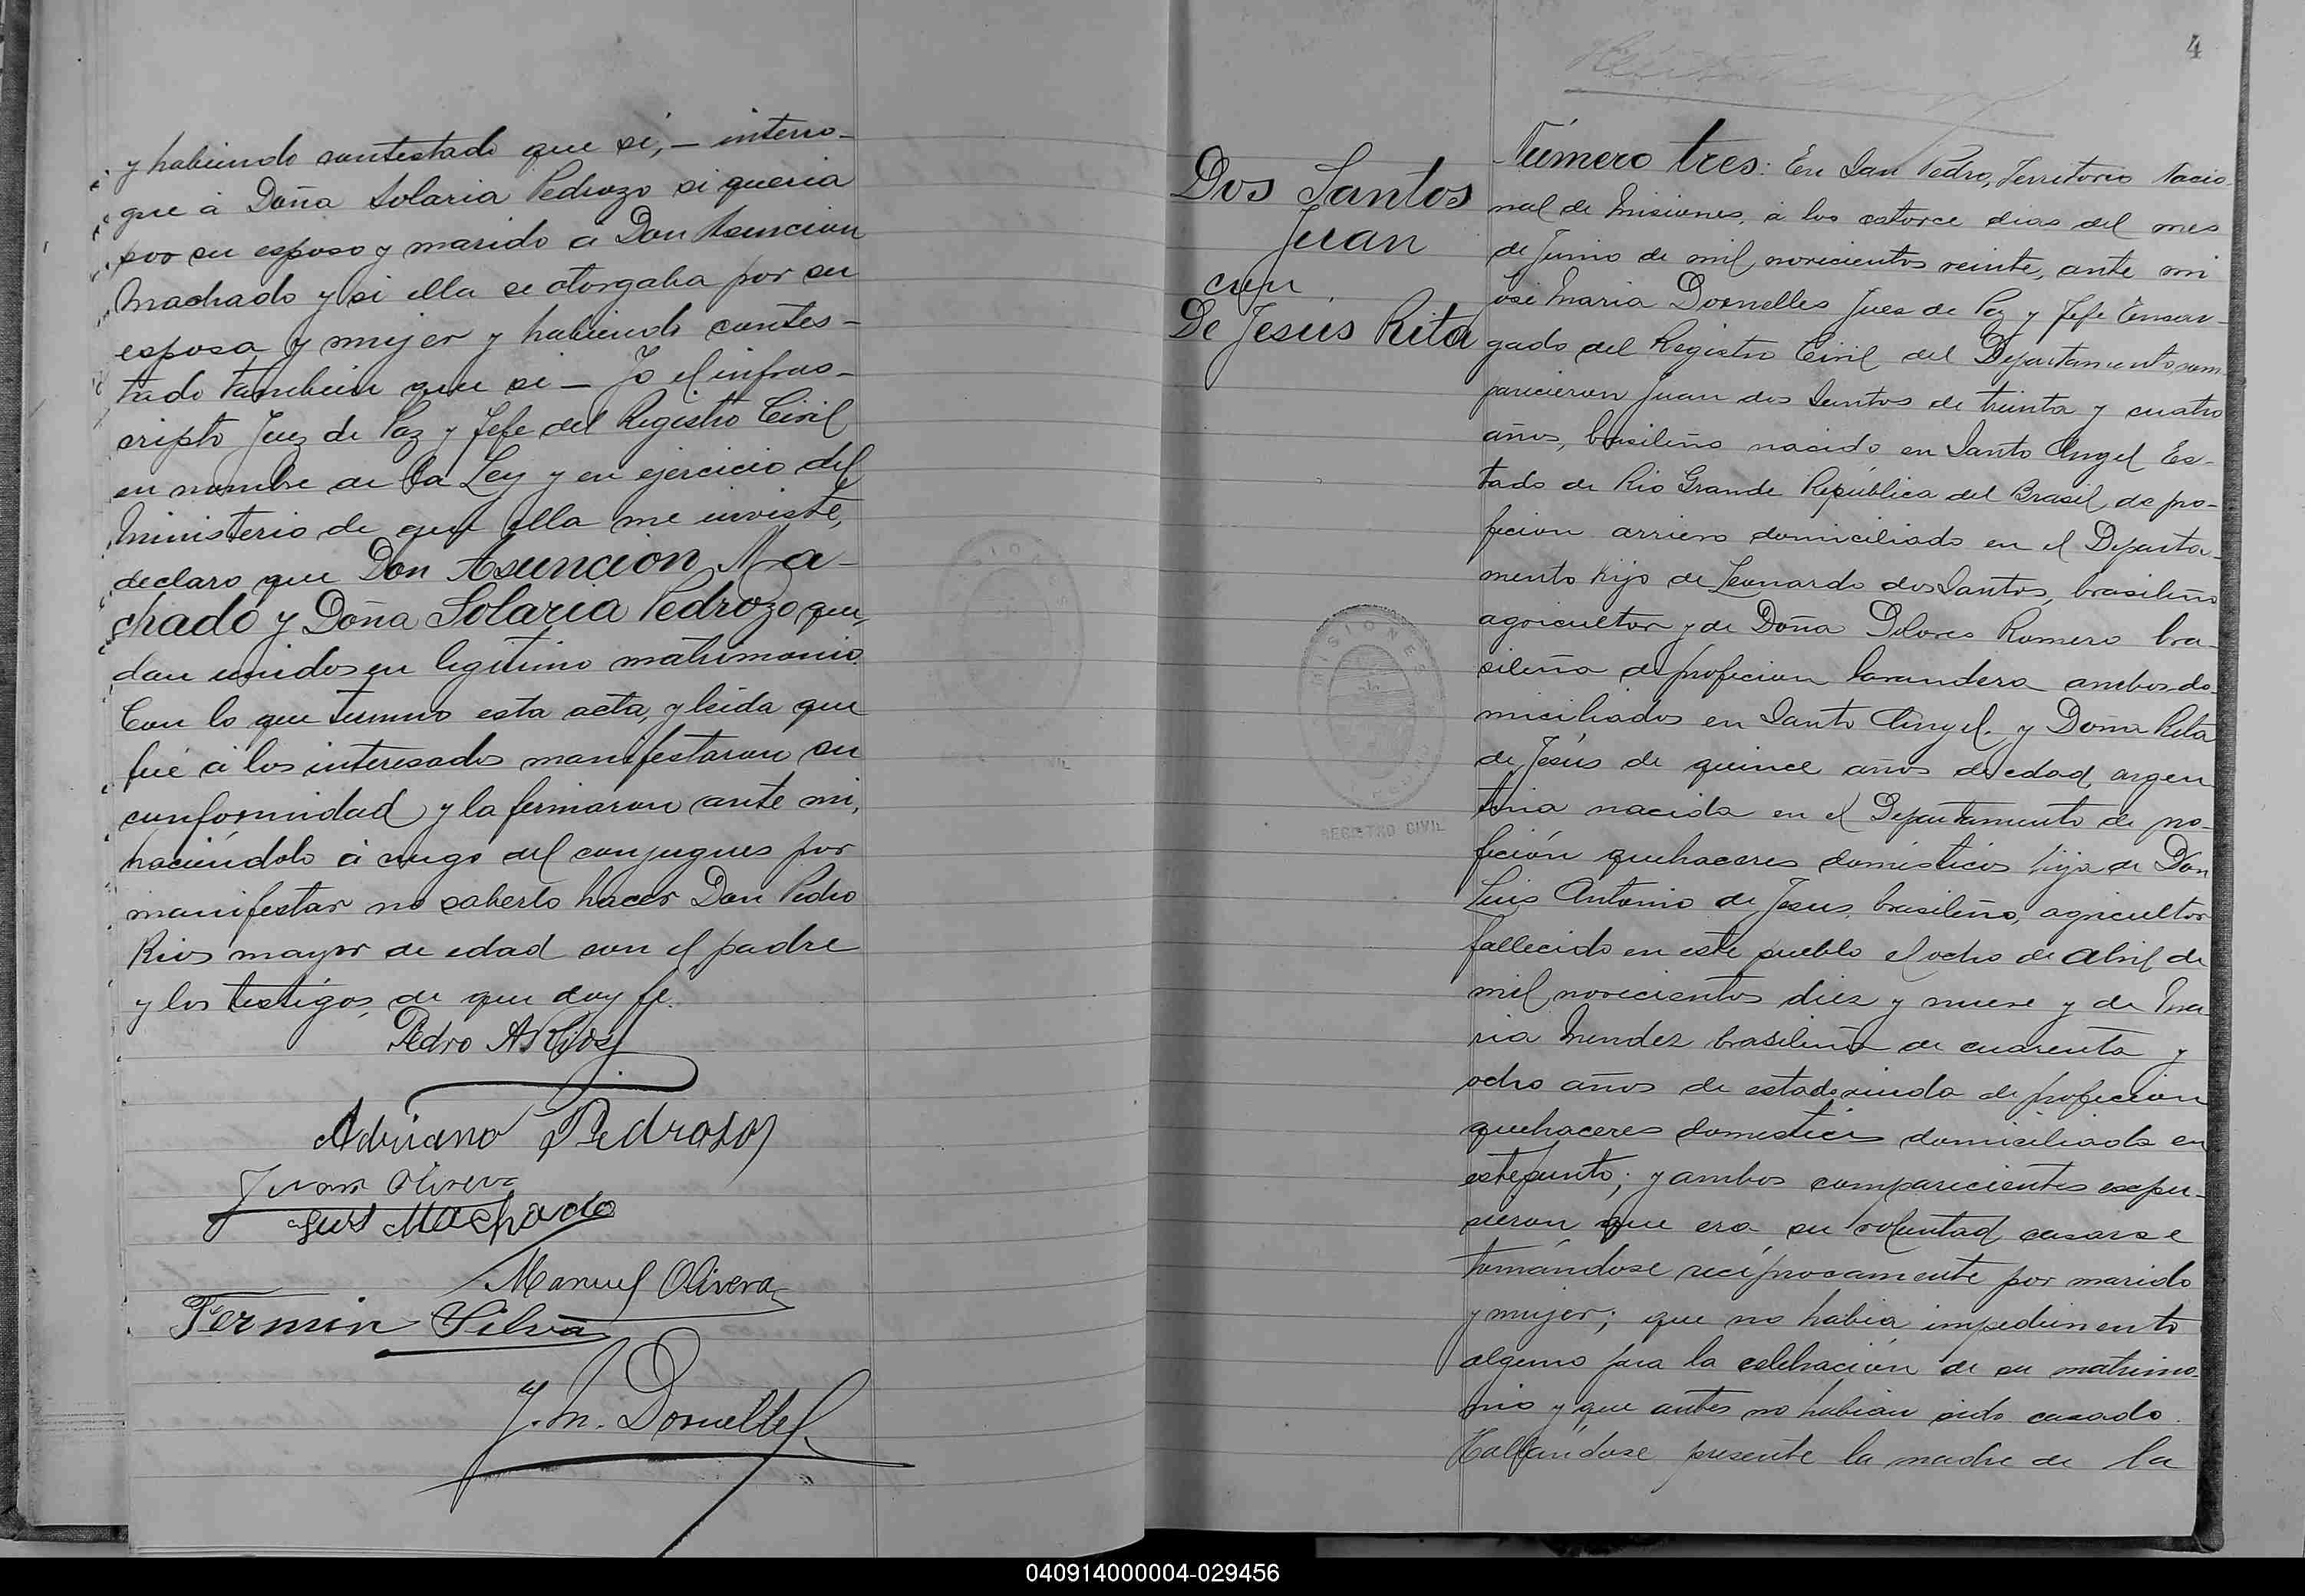 y habiendo contestado que si, – interro-
gue á Doña Solaria Pedrozo si queria
por su esposo y marido á Don Asuncion
Machado y si ella se otorgaba por su
esposa y mujer y habiendo contes-
tado tambien que si – Yo el infras-
cripto Juez de Paz y Jefe del Registro Civil
en nombre de la Ley y en ejercicio del
Ministerio de que ella me inviste,
declaro que Don Asuncion Ma-
chado y Doña Solaria Pedrozo que,
dan unidos en legitimo matrimonio.
Con lo que termino esta acta, y leida que
fué á los interesados manifestaron su
conformidad y la firmaron ante mi,
haciendolo á ruego del conjugues por
manifestar no saberlo hacer Don Pedro
Rios mayor de edad con el padre
y los testigos, de que doy fe.
Pedro A Rios
Adriano Pedroso
Juan Olivera
Luis Machado
Manuel Olivera
Fermin Silva
J. M. Dornelles
4
Dos Santos
Juan
con
De Jesus Rita
Número tres: En San Pedro, Territorio Nacio-
nal de Misiones, á los catorce dias del mes
de Junio de mil novecientos veinte, ante mi
José Maria Dornelles Juez de Paz y Jefe Encar-
gado del Registro Civil del Departamento, com-
parecieron Juan dos Santos de treinta y cuatro
años, brasileño nacido en Santo Angel Es-
tado de Rio Grande República del Brasil, de pro-
fecion arriero domiciliado en el Departa-
mento hijo de Leonardo dos Santos, brasileño
agricultor y de Doña Dolores Romero bra-
sileña de profecion lavandera ambos do-
miciliados en Santo Angel, y Doña Rita
de Jesús de quince años de edad, argen
tina nacida en el Departamento de pro-
feción quehaceres domésticos hija de Don
Luis Antonio de Jesus, brasileño, agricultor
fallecido en este pueblo el ocho de Abril de
mil novecientos diez y nueve y de Ma
ria Mendez brasileña de cuarenta y
ocho años de estado viuda de profecion
quehaceres domesticos domiciliada en
este punto; y ambos comparecientes expu-
sieron que era su voluntad casarse
tomándose recíprocamente por marido
y mujer; que no habia impedimento
alguno para la celebración de su matrimo-
nio y que antes no habian sido casado.
Hallándose presente la madre de la
MISIONES
REGISTRO CIVIL
040914000004-029456